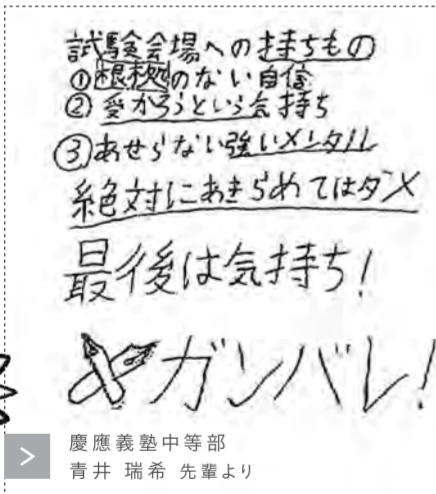 試験会場への持ちもの
①根拠のない自信
② 受かろうという気持ち
③あせらない強いメンタル
絶対にあきらめてはダメ
最後は気持ち!
ガンバレ!
慶應義塾中等部
青井 瑞希 先輩より